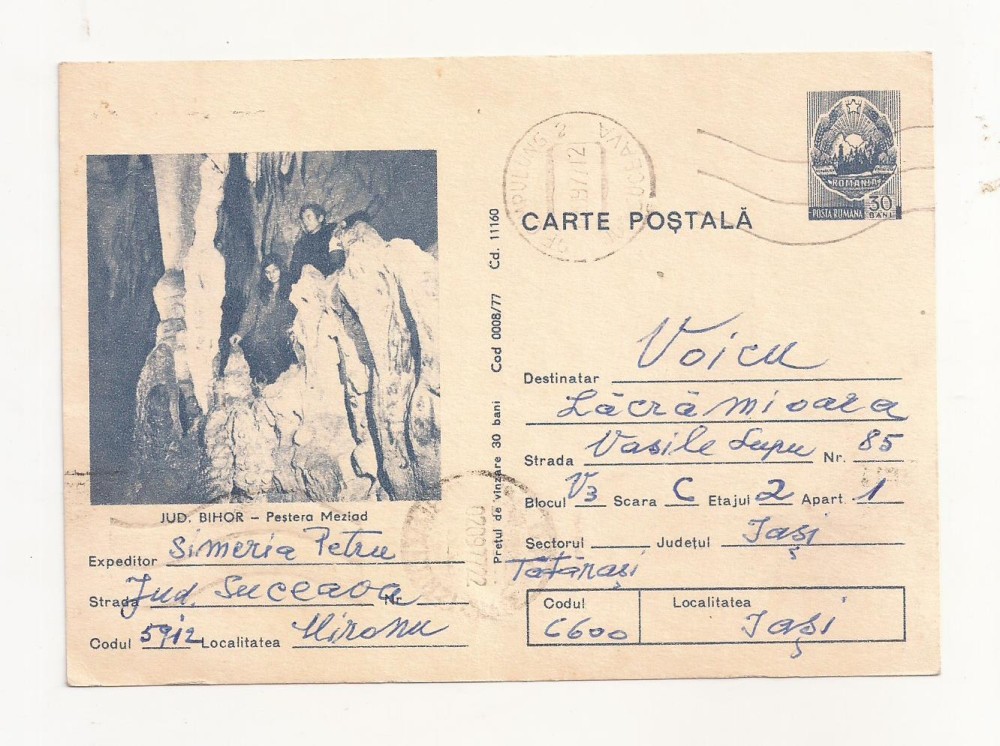 ROMANIA
POSTA ROMANA 30 BANI
CARTE POȘTALĂ
Prețul de vînzare 30 bani Cod 0008/77 Cd. 11160
JUD. BIHOR – Peștera Meziad
Expeditor Simeria Petru
Strada Jud. Suceava Nr.
Codul 5912 Localitatea Mironu
Destinatar Voicu
Lăcrămioara
Strada Vasile Lupu Nr. 85
Blocul V3 Scara C Etajul 2 Apart 1
Sectorul Județul Iași
Tătărași
Codul Localitatea
6600 Iași